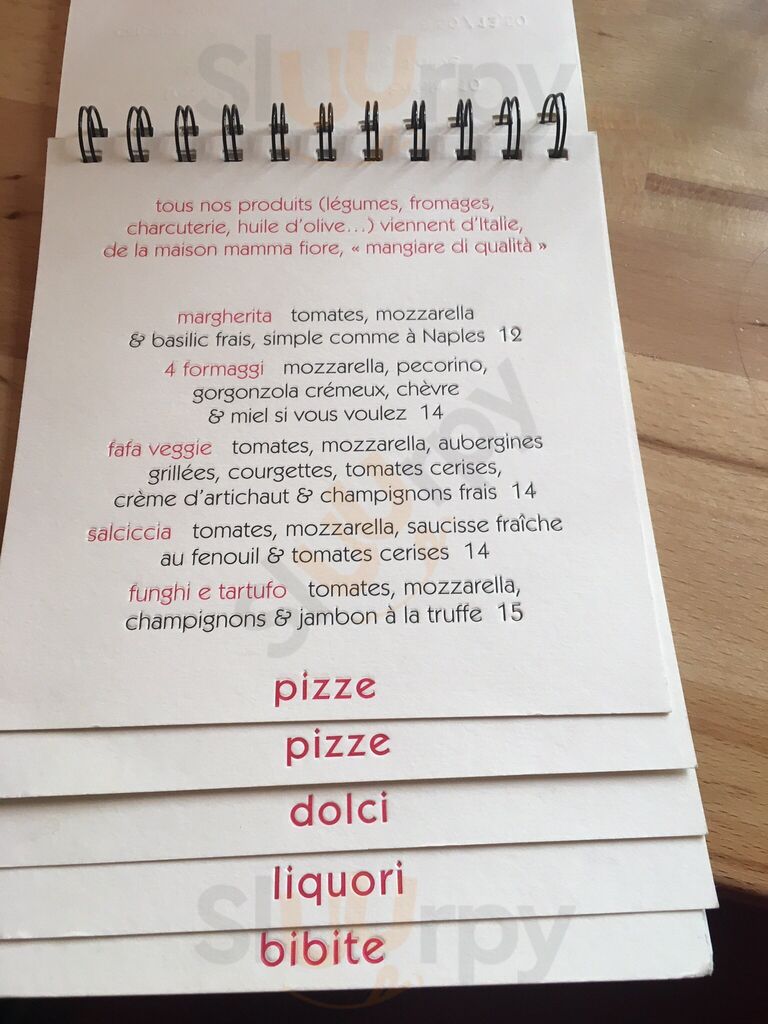 Sluurpy
tous nos produits (légumes, fromages,
charcuterie, huile d'olive...) viennent d'Italie,
de la maison mamma fiore, « mangiare di qualità »
margherita tomates, mozzarella
& basilic frais, simple comme à Naples 12
4 formaggi mozzarella, pecorino,
gorgonzola crémeux, chèvre
& miel si vous voulez 14
fafa veggie tomates, mozzarella, aubergines
grillées, courgettes, tomates cerises,
crème d'artichaut & champignons frais 14
salciccia tomates, mozzarella, saucisse fraîche
au fenouil & tomates cerises 14
funghi e tartufo tomates, mozzarella,
champignons & jambon à la truffe 15
Sluurpy
pizze
pizze
dolci
liquori
Sluurpy
bibite